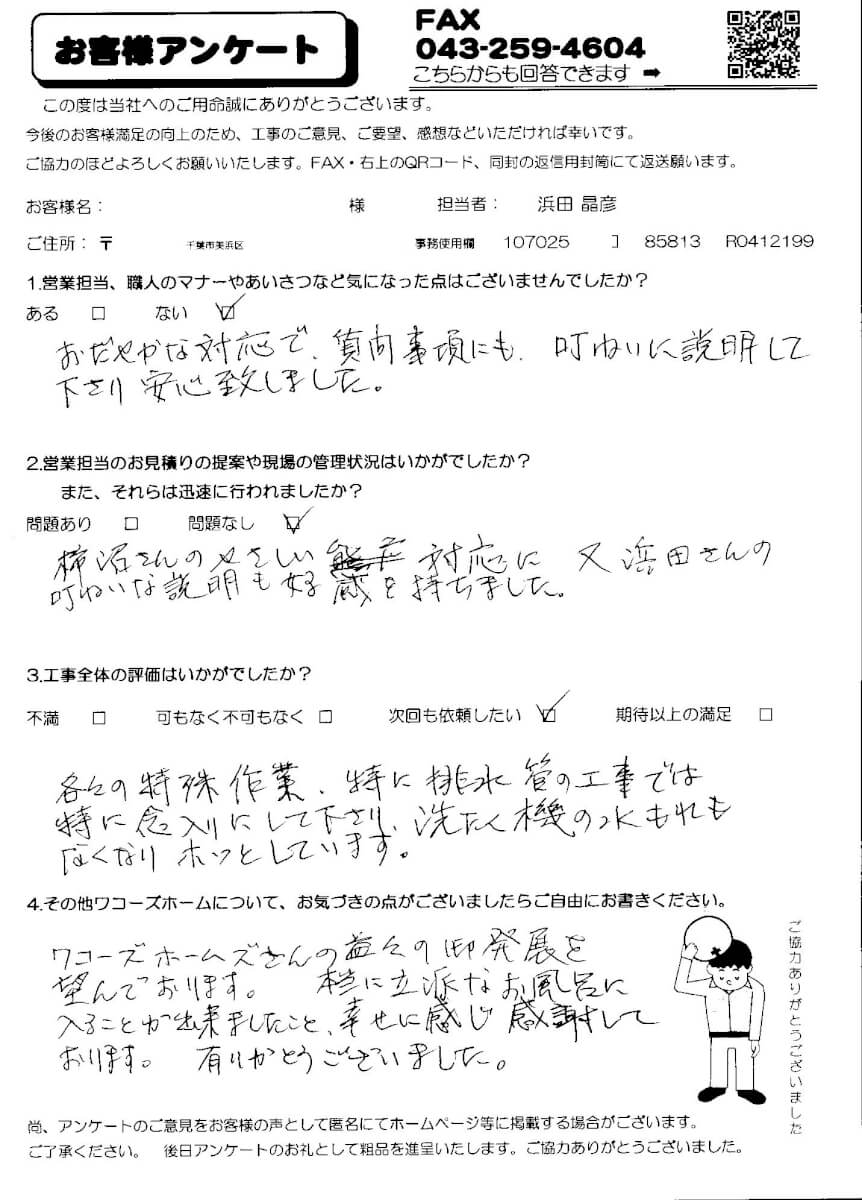 お客様アンケート
FAX
043-259-4604
こちらからも回答できます ➡
この度は当社へのご用命誠にありがとうございます。
今後のお客様満足の向上のため、工事のご意見、ご要望、感想などいただければ幸いです。
ご協力のほどよろしくお願いいたします。FAX・右上のQRコード、同封の返信用封筒にて返送願います。
お客様名： 様 担当者： 浜田 晶彦
ご住所：〒 千葉市美浜区 事務使用欄 107025 ] 85813 R0412199
1.営業担当、職人のマナーやあいさつなど気になった点はございませんでしたか？
ある □ ない ☑
おだやかな対応で、質問事項にも、叮ねいに説明して
下さり 安心致しました。
2.営業担当のお見積りの提案や現場の管理状況はいかがでしたか？
また、それらは迅速に行われましたか？
問題あり □ 問題なし ☑
柿沼さんのやさしい 対応に 又 浜田さんの
叮ねいな説明も好感を持ちました。
3.工事全体の評価はいかがでしたか？
不満 □ 可もなく不可もなく □ 次回も依頼したい ☑ 期待以上の満足 □
各々の特殊作業、特に排水管の工事では
特に念入りにして下さり、洗たく機の水もれも
なくなりホッとしています。
4.その他ワコーズホームについて、お気づきの点がございましたらご自由にお書きください。
ワコーズホームズさんの益々の御発展を
望んでおります。 本当に立派なお風呂に
入ることが出来ましたこと、幸せに感じ 感謝して
おります。 有りがとうございました。
ご協力ありがとうございました
尚、アンケートのご意見をお客様の声として匿名にてホームページ等に掲載する場合がございます。
ご了承ください。 後日アンケートのお礼として粗品を進呈いたします。ご協力ありがとうございました。